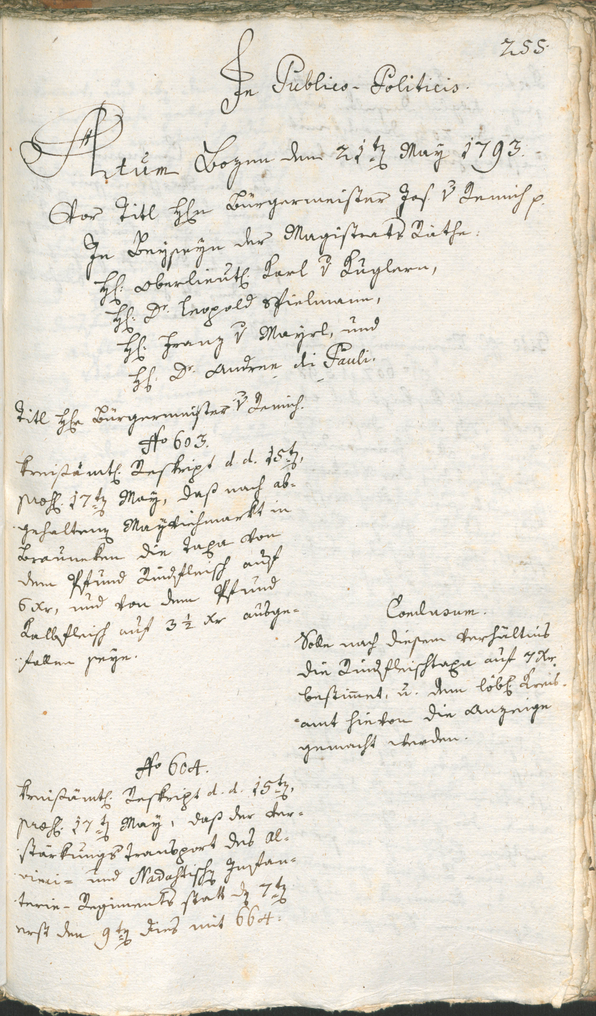 255.
In Publico-Politicis.
Actum Bozen dem 21tn May 1793.
Vor Titl Hhn Bürgermeister Jos. v Remich p.
In Beyseyn der Magistrats Räthe:
Hh. Oberlieutn. Karl v Kuglern,
Hh. Dr. Leopold Spielmann,
Hh. Franz v Mayrl, und
Hh. Dr. Andree di Pauli.
Titl Hhn Bürgermeister v Remich.
No 603.
Kreisämtl. Reskript d. d. 15tn,
präs. 17tn May, daß nach ab-
gehaltenen Mayviehmarkt in
Brauneken die Taxa von
dem Pfund Rindfleisch auf
6 Xr, und von dem Pfund
Kalbfleisch auf 3 1/2 Xr ausge-
fallen seye.
Conclusum.
Solle nach diesem Verhältnis
die Rindfleischtaxa auf 7 Xr.
bestimmet, u. dem löbl. Kreis-
amt hievon die Anzeige
gemacht werden.
No 604.
Kreisämtl. Reskript d. d. 15tn,
präs. 17tn May, daß der Ver-
stärkungs Transport des Al-
vinci- und Nadastischen Infan-
terie-Regiments statt den 7tn
erst den 9tn dies mit 664: